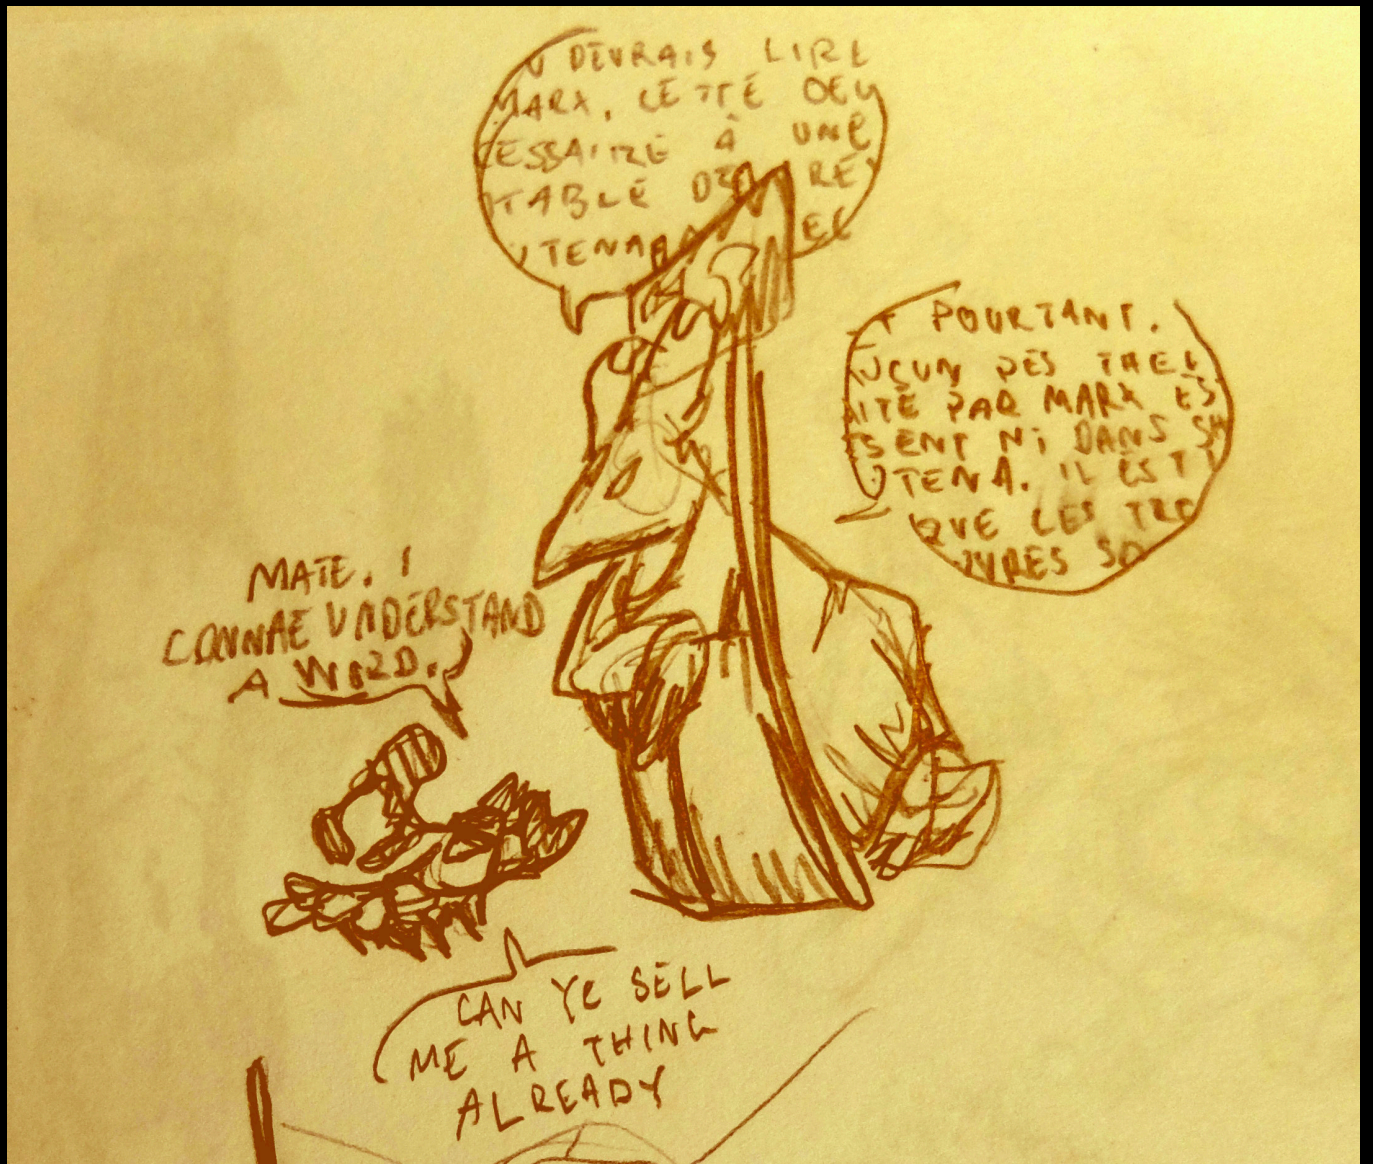 U DEVRAIS LIRE
MARX. CETTE OEU
CESSAIRE À UNE
ITABLE DE RÉ
UTENA EL
T POURTANT.
UCUN DES THE
AITÉ PAR MARX ES
SENT NI DANS SH
UTENA. IL EST
QUE LES TRO
UVRES SO
MATE. I
CANNAE UNDERSTAND
A WORD.
CAN YE SELL
ME A THING
ALREADY